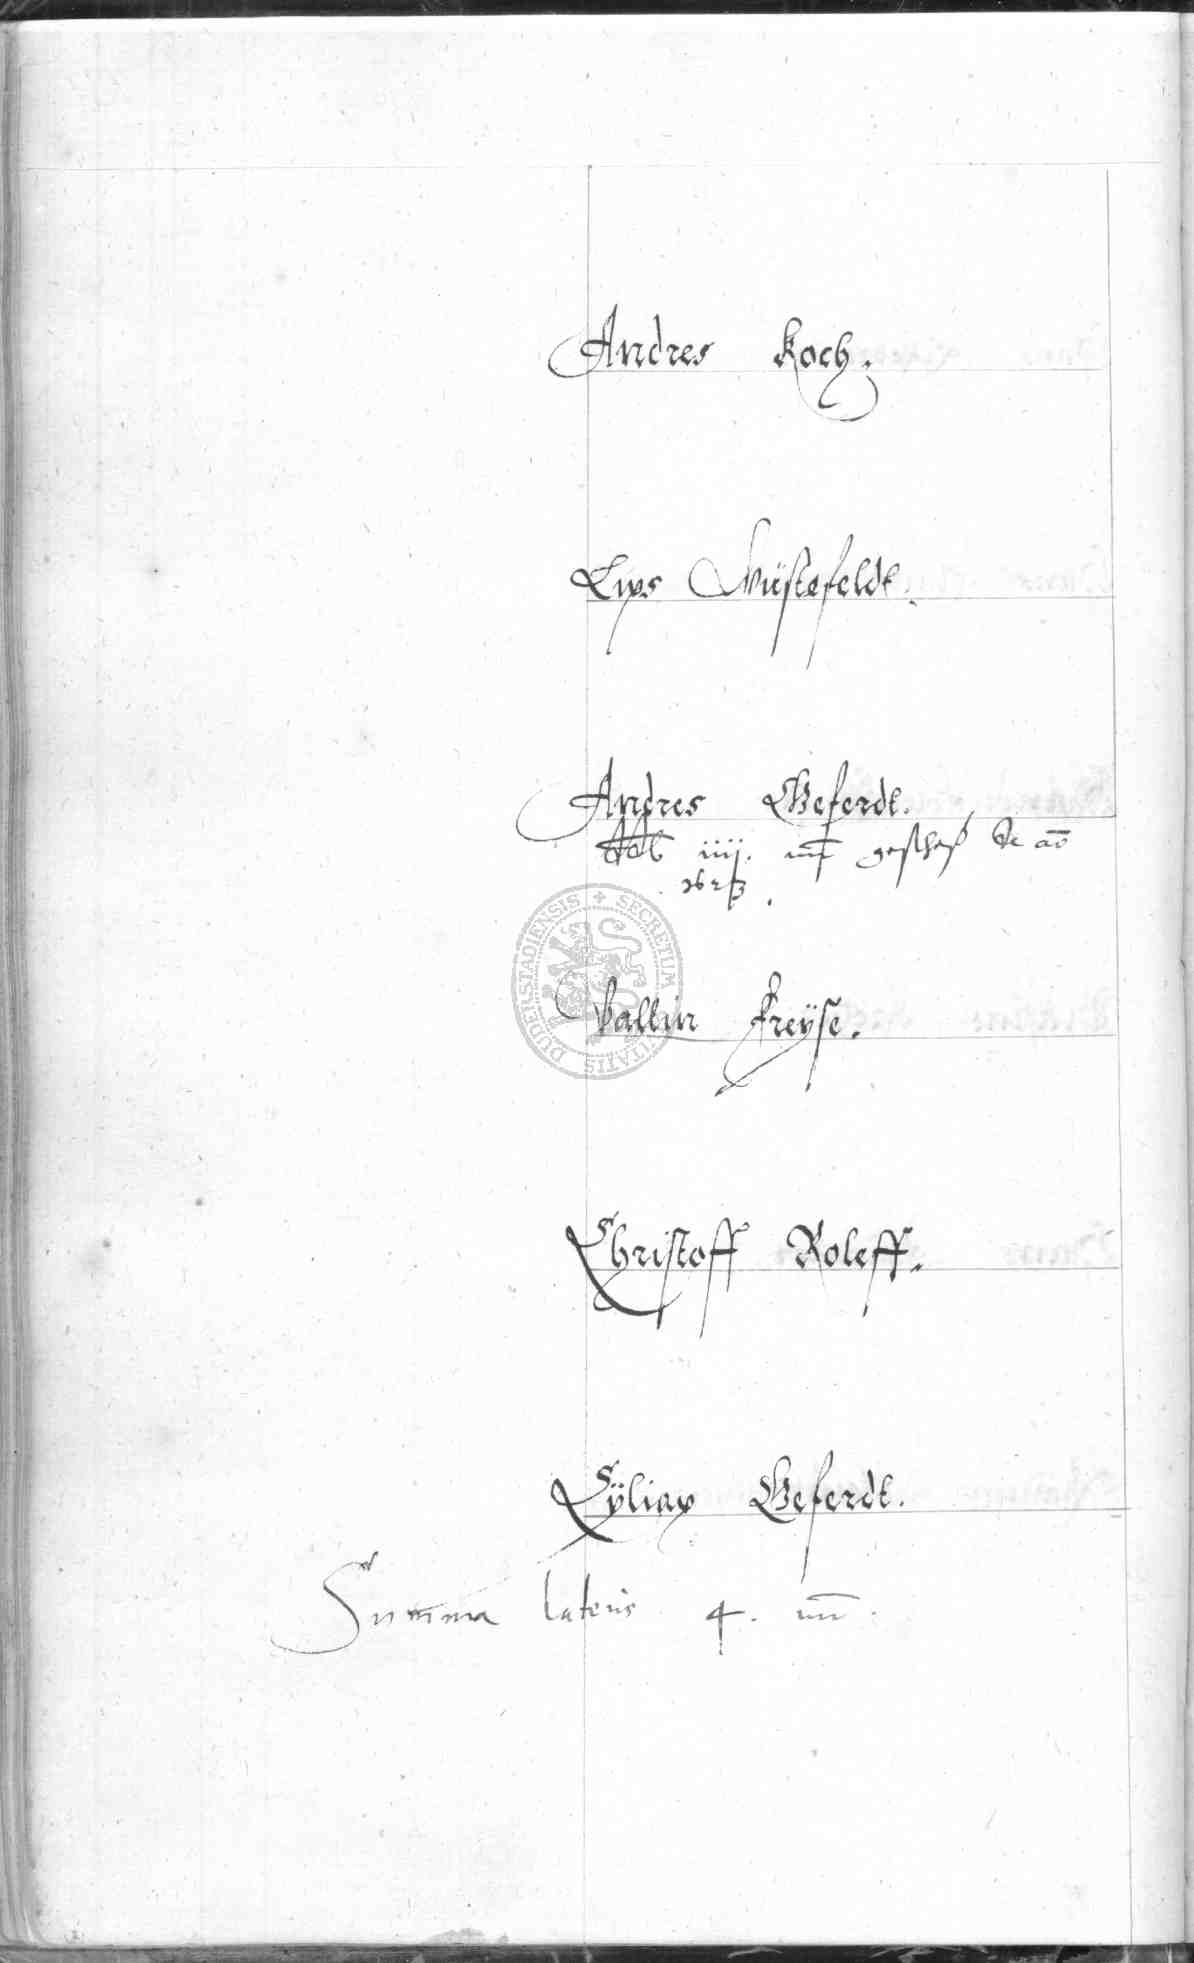 Andres Koch.
Lips Wüstefeldt.
Andres Geferdt.
iiij. geschoß de ao
Vallin Freÿse.
Christoff Roleff.
Cÿliax Geferdt.
Summa lateris 4.
SECRETUM DUDERSTADIENSIS